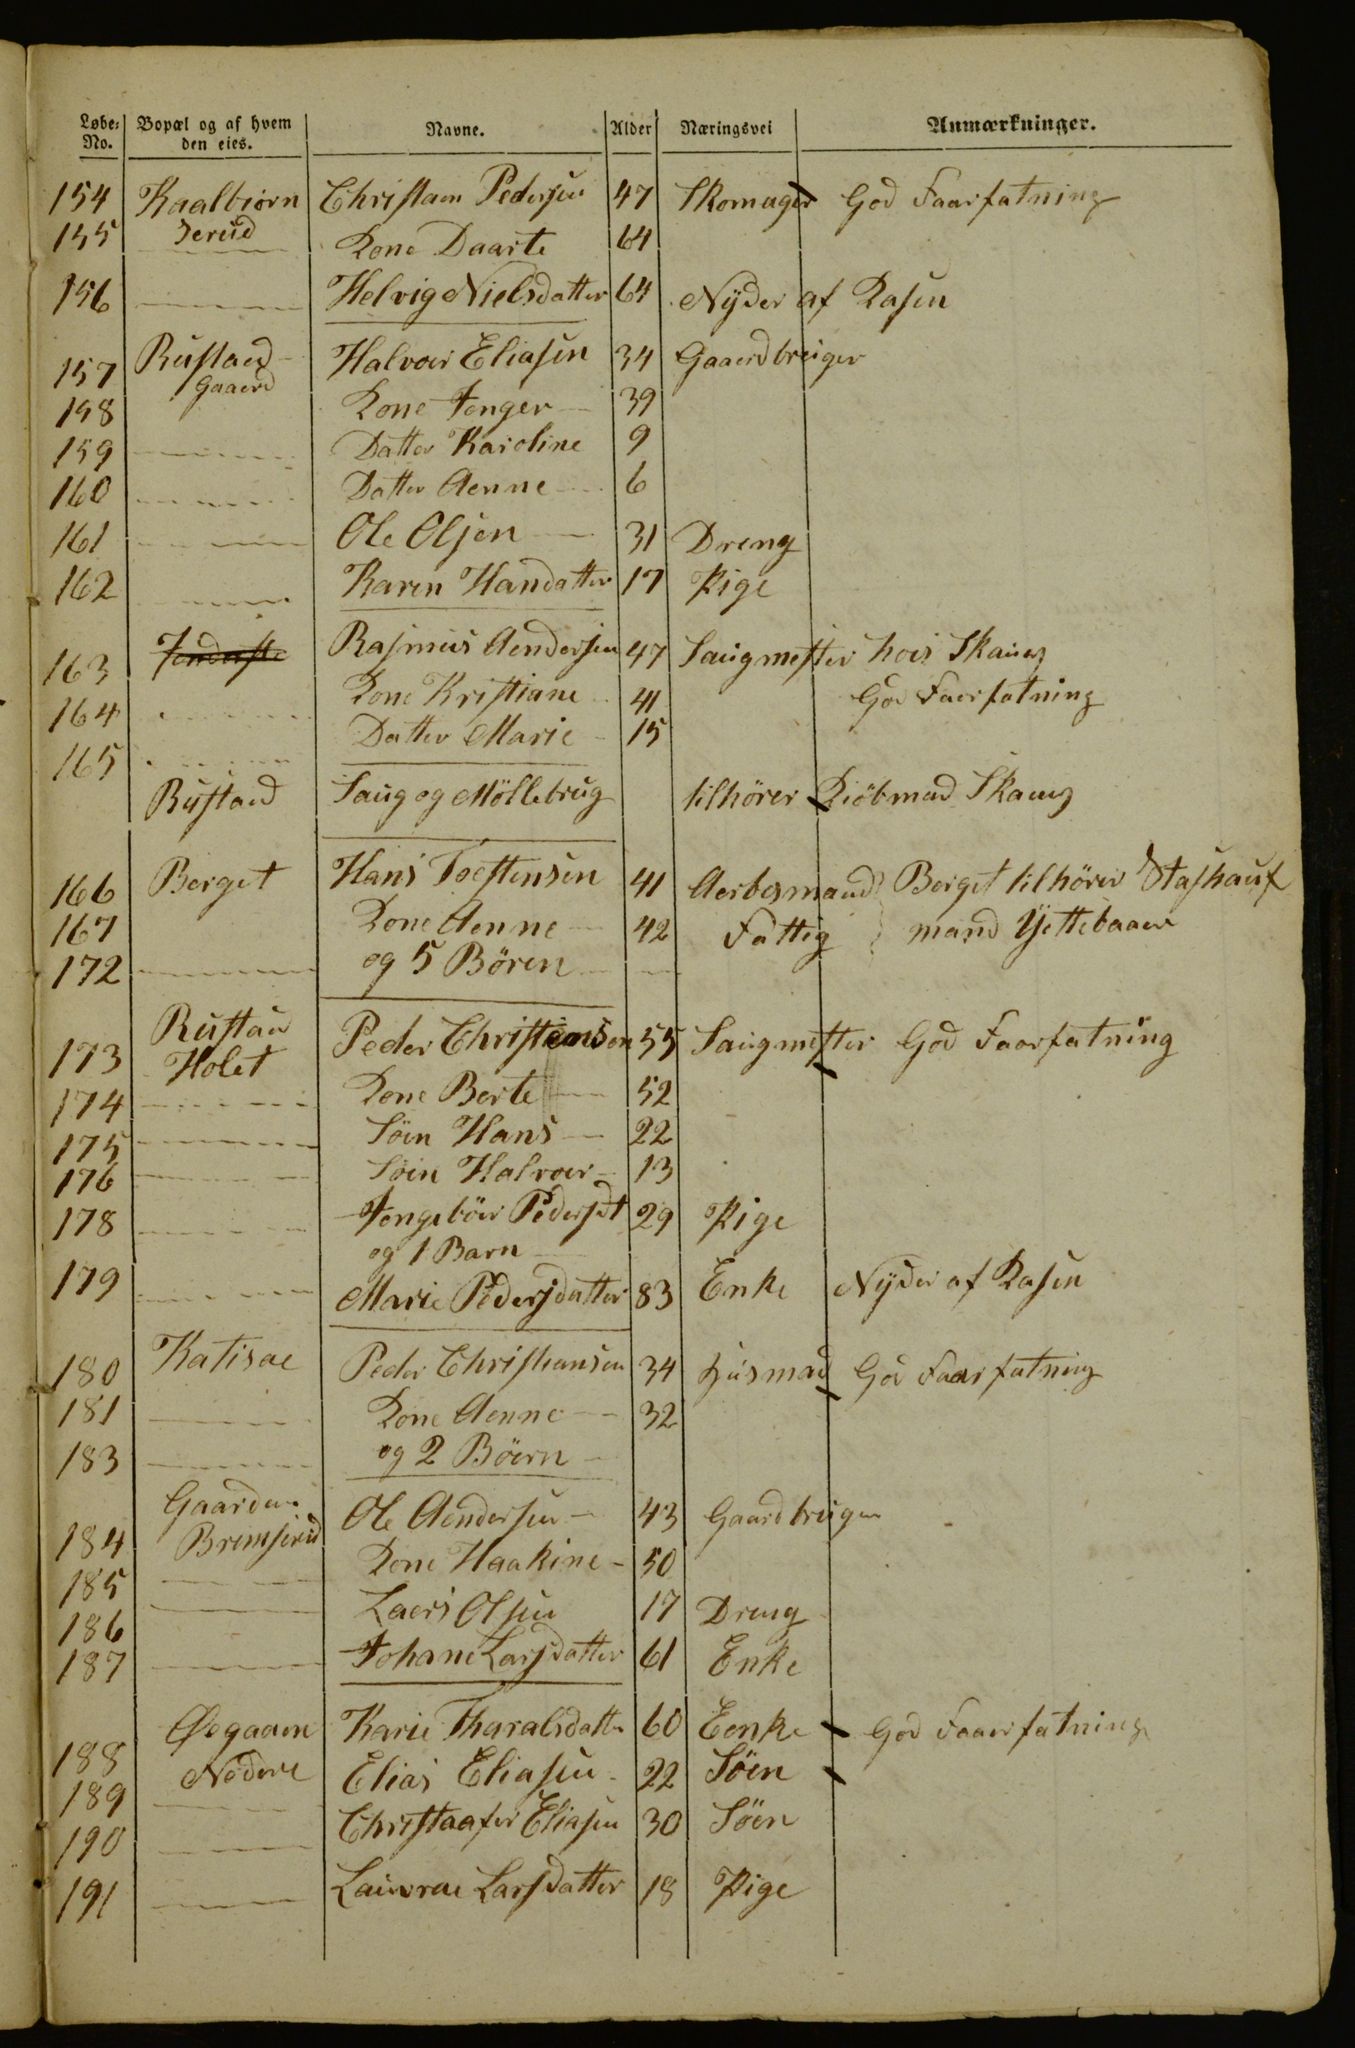 Løbe-No. Bopæl og af hvem den eies. Navne. Alder Næringsvei Anmærkninger.
154 Kaalbiorn Christaen Pedersen 47 Skomager God Faarfatning
155 Jerud Kone Daarte 64
156 Helvig Nielsdatter 64 Nyder af Kasen
157 Rustaed Halvoer Eliasen 34 Gaaerdbruger
Gaaerd
158 Kone Jenger 39
159 Datter Karoline 9
160 Datter Aenne 6
161 Ole Olsen 31 Dreng
162 Karen Handatter 17 Pige
163 Rasmus Aendersen 47 Saugmester hois Skaug
164 Kone Kristiane 41 God Faerfatning
165 Datter Marie 15
Rustaed Saug og Möllebrug tilhörer Kiöbmad Skaug
166 Berget Hans Toestensen 41 Aerbesmand Berget tilhörer
167 Kone Aenne 42 Fattig mand
172 og 5 Bören
Rustau
173 Holet Peder Christiansen 55 Saugmester God Faorfatning
174 Kone Berte 52
175 Söen Hans 22
176 Söen Halvoer 13
178 Jengeböer Pedersdt 29 Pige
og 1 Barn
179 Marie Pedersdatter 83 Enke Nyder af Kasen
180 Katisae Peder Christiansen 34 Husmad God Faarfatning
181 Kone Aenne 32
183 og 2 Böern
Gaarden
184 Bremserud Ole Aendersen 43 Gaardbruger
185 Kone Haakine 50
186 Laers Olsen 17 Dreng
187 Johane Larsdatter 61 Enke
188 Øegaaen Karie Tharalsdatter 60 Eenke God Faaerfatning
189 Nedere Elias Eliasen 22 Söen
190 Christaafer Eliasen 30 Söen
191 Laurae Larsdatter 18 Pige